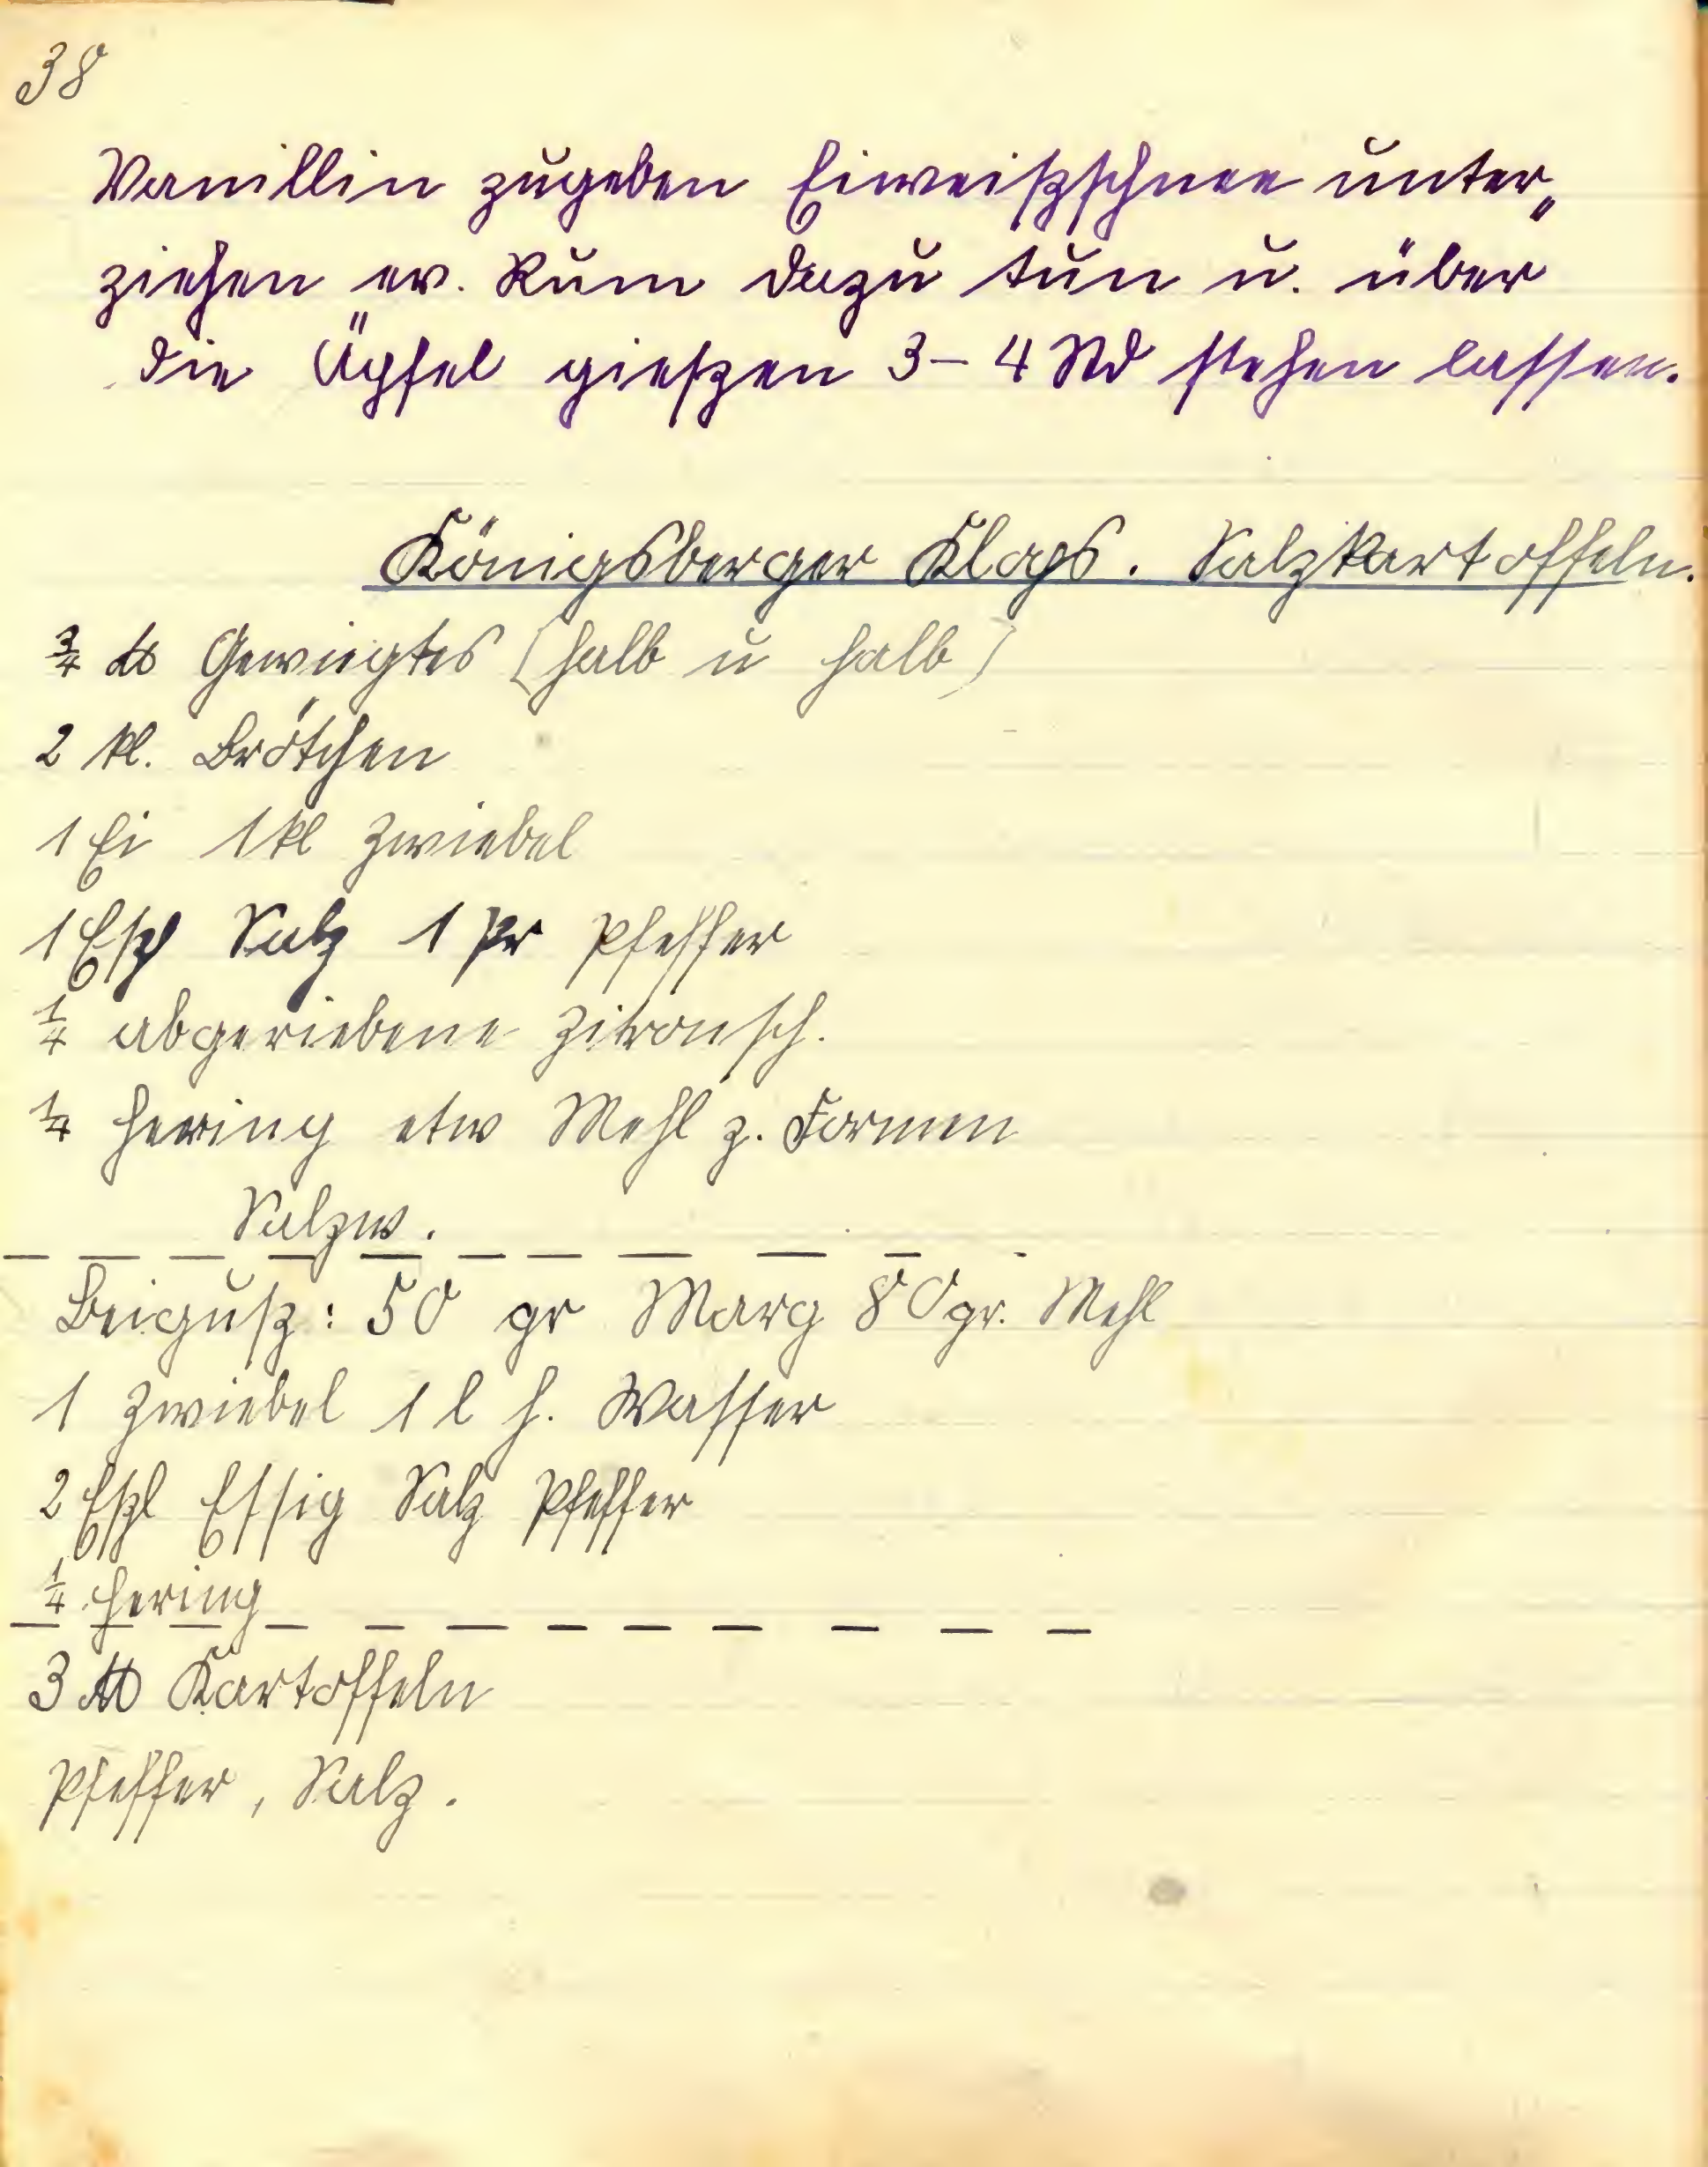 38
Vanillin zugeben Eiweißschnee unter„
ziehen ev. Rum dazu tun u. über
die Äpfel gießen 3–4 Std stehen lassen.
Königsberger Klops. Salzkartoffeln.
¾ ℔ Gewiegtes (halb u halb)
2 kl. Brötchen
1 Ei 1 kl Zwiebel
1 Eßl Salz 1 Pr Pfeffer
¼ abgeriebene Zitronsch.
¼ Hering etw Mehl z. Formen
Salzw.
Beiguß: 50 gr Marg 80 gr. Mehl
1 Zwiebel 1 l h. Wasser
2 Eßl Essig Salz Pfeffer
¼ Hering
3 ℔ Kartoffeln
Pfeffer, Salz.